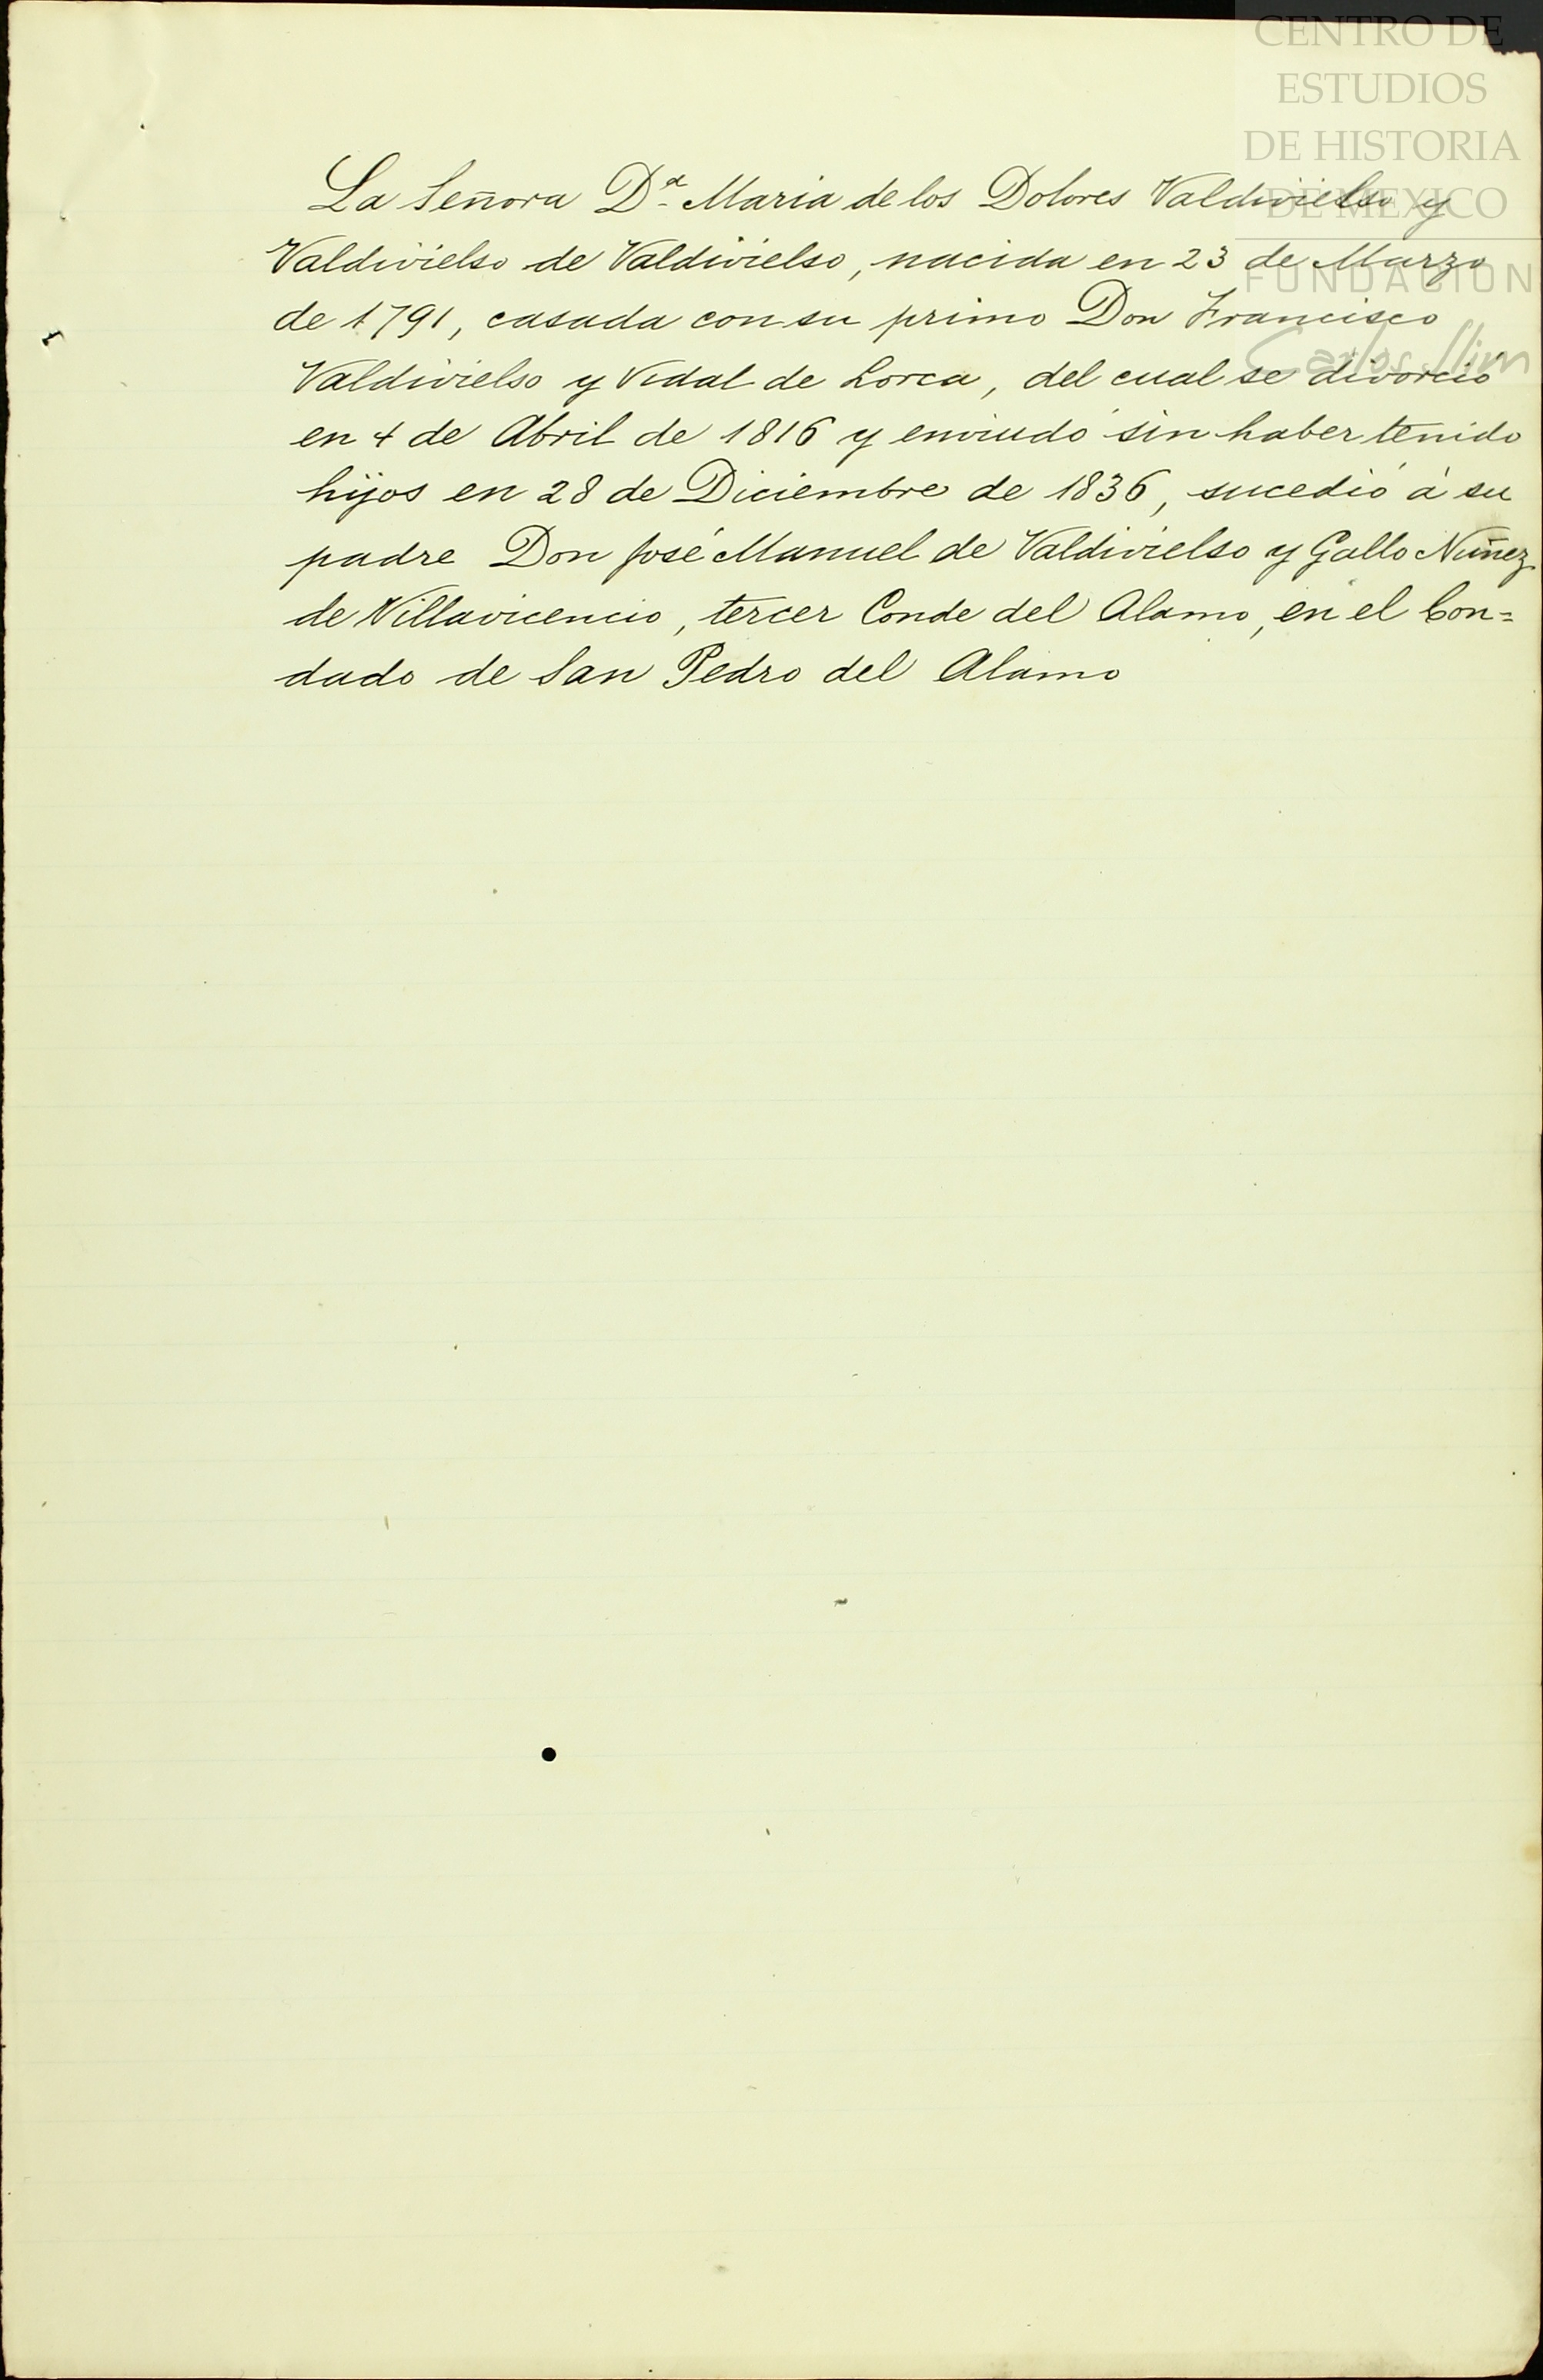 CENTRO DE
ESTUDIOS
DE HISTORIA
DE MEXICO
FUNDACION
Carlos Slim
La Señora Dª Maria de los Dolores Valdivielso y
Valdivielso de Valdivielso, nacida en 23 de Marzo
de 1791, casada con su primo Don Francisco
Valdivielso y Vidal de Lorca, del cual se divorció
en 4 de Abril de 1816 y enviudó sin haber tenido
hijos en 28 de Diciembre de 1836, sucedió á su
padre Don José Manuel de Valdivielso y Gallo Nuñez
de Villavicencio, tercer Conde del Alamo, en el Con=
dado de San Pedro del Alamo